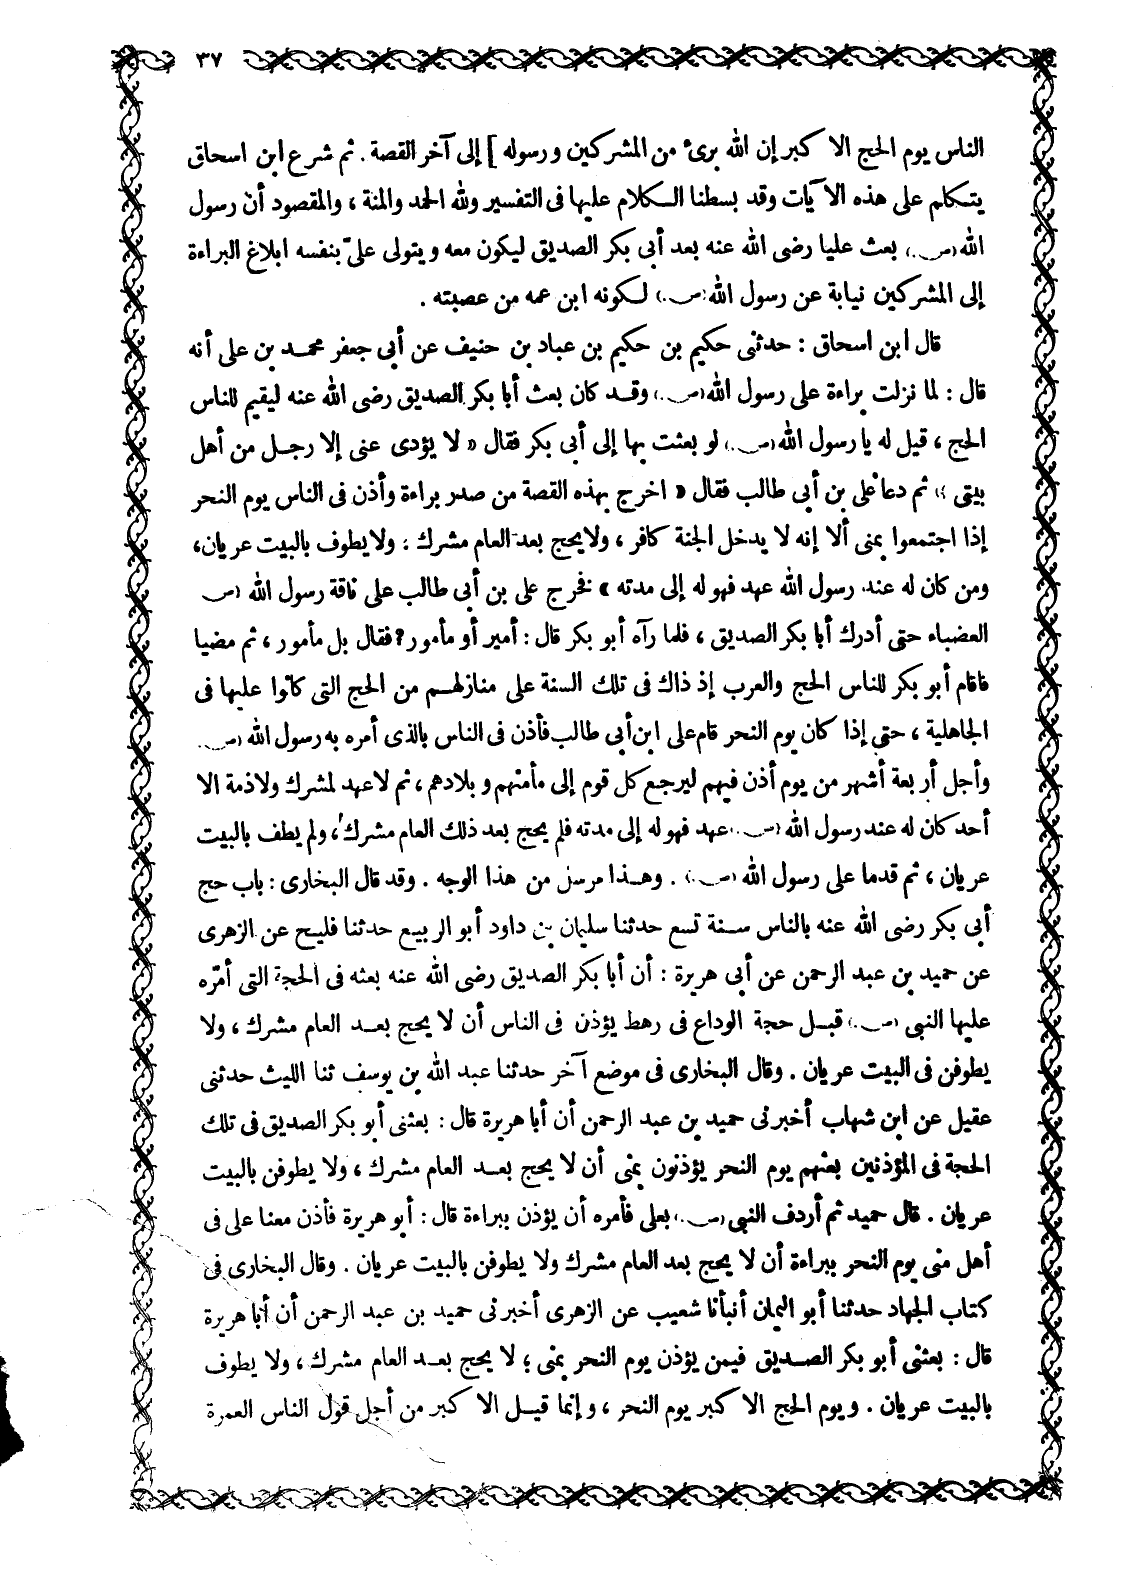 ٣٧
الناس يوم الحج الاكبر إن الله برىء من المشركين ورسوله ] إلى آخر القصة . ثم شرع ابن اسحاق
يتكلم على هذه الآيات وقد بسطنا الكلام عليها فى التفسير ولله الحمد والمنة ، والمقصود أن رسول
الله (ص.) بعث عليا رضى الله عنه بعد أبى بكر الصديق ليكون معه ويتولى علىّ بنفسه ابلاغ البراءة
إلى المشركين نيابة عن رسول الله (ص.) لكونه ابن عمه من عصبته .
قال ابن اسحاق : حدثنى حكيم بن حكيم بن عباد بن حنيف عن أبى جعفر محمد بن على أنه
قال : لما نزلت براءة على رسول الله (ص.) وقد كان بعث أبا بكر الصديق رضى الله عنه ليقيم للناس
الحج ، قيل له يا رسول الله (ص.) لو بعثت بها إلى أبى بكر فقال « لا يؤدى عنى إلا رجل من أهل
بيتى » ثم دعا على بن أبى طالب فقال « اخرج بهذه القصة من صدر براءة وأذن فى الناس يوم النحر
إذا اجتمعوا بمنى ألا إنه لا يدخل الجنة كافر ، ولا يحج بعد العام مشرك ؛ ولا يطوف بالبيت عريان ،
ومن كان له عند رسول الله عهد فهو له إلى مدته » فخرج على بن أبى طالب على ناقة رسول الله (ص
العضباء حتى أدرك أبا بكر الصديق ، فلما رآه أبو بكر قال : أمير أو مأمور ؟ فقال بل مأمور ، ثم مضيا
فاقام أبو بكر للناس الحج والعرب إذ ذاك فى تلك السنة على منازلهم من الحج التى كانوا عليها فى
الجاهلية ، حتى إذا كان يوم النحر قام على ابن أبى طالب فأذن فى الناس بالذى أمره به رسول الله (ص.
وأجل أربعة أشهر من يوم أذن فيهم ليرجع كل قوم إلى مأمنهم وبلادهم ، ثم لا عهد لمشرك ولا ذمة الا
أحد كان له عند رسول الله (ص.) عهد فهو له إلى مدته فلم يحج بعد ذلك العام مشرك ، ولم يطف بالبيت
عريان ، ثم قدما على رسول الله (ص.) . وهذا مرسل من هذا الوجه . وقد قال البخارى : باب حج
أبى بكر رضى الله عنه بالناس سنة تسع حدثنا سليمان بن داود أبو الربيع حدثنا فليح عن الزهرى
عن حميد بن عبد الرحمن عن أبى هريرة : أن أبا بكر الصديق رضى الله عنه بعثه فى الحجة التى أمّره
عليها النبى (ص.) قبل حجة الوداع فى رهط يؤذن فى الناس أن لا يحج بعد العام مشرك ، ولا
يطوفن فى البيت عريان . وقال البخارى فى موضع آخر حدثنا عبد الله بن يوسف ثنا الليث حدثنى
عقيل عن ابن شهاب أخبرنى حميد بن عبد الرحمن أن أبا هريرة قال : بعثنى أبو بكر الصديق فى تلك
الحجة فى المؤذنين بعثهم يوم النحر يؤذنون بمنى أن لا يحج بعد العام مشرك ، ولا يطوفن بالبيت
عريان . قال حميد ثم أردف النبى (ص.) بعلى فأمره أن يؤذن ببراءة قال : أبو هريرة فأذن معنا على فى
أهل منى يوم النحر ببراءة أن لا يحج بعد العام مشرك ولا يطوفن بالبيت عريان . وقال البخارى فى
كتاب الجهاد حدثنا أبو اليمان أنبأنا شعيب عن الزهرى أخبرنى حميد بن عبد الرحمن أن أبا هريرة
قال : بعثنى أبو بكر الصديق فيمن يؤذن يوم النحر بمنى ؛ لا يحج بعد العام مشرك ، ولا يطوف
بالبيت عريان . ويوم الحج الاكبر يوم النحر ، وإنما قيل الاكبر من أجل قول الناس العمرة